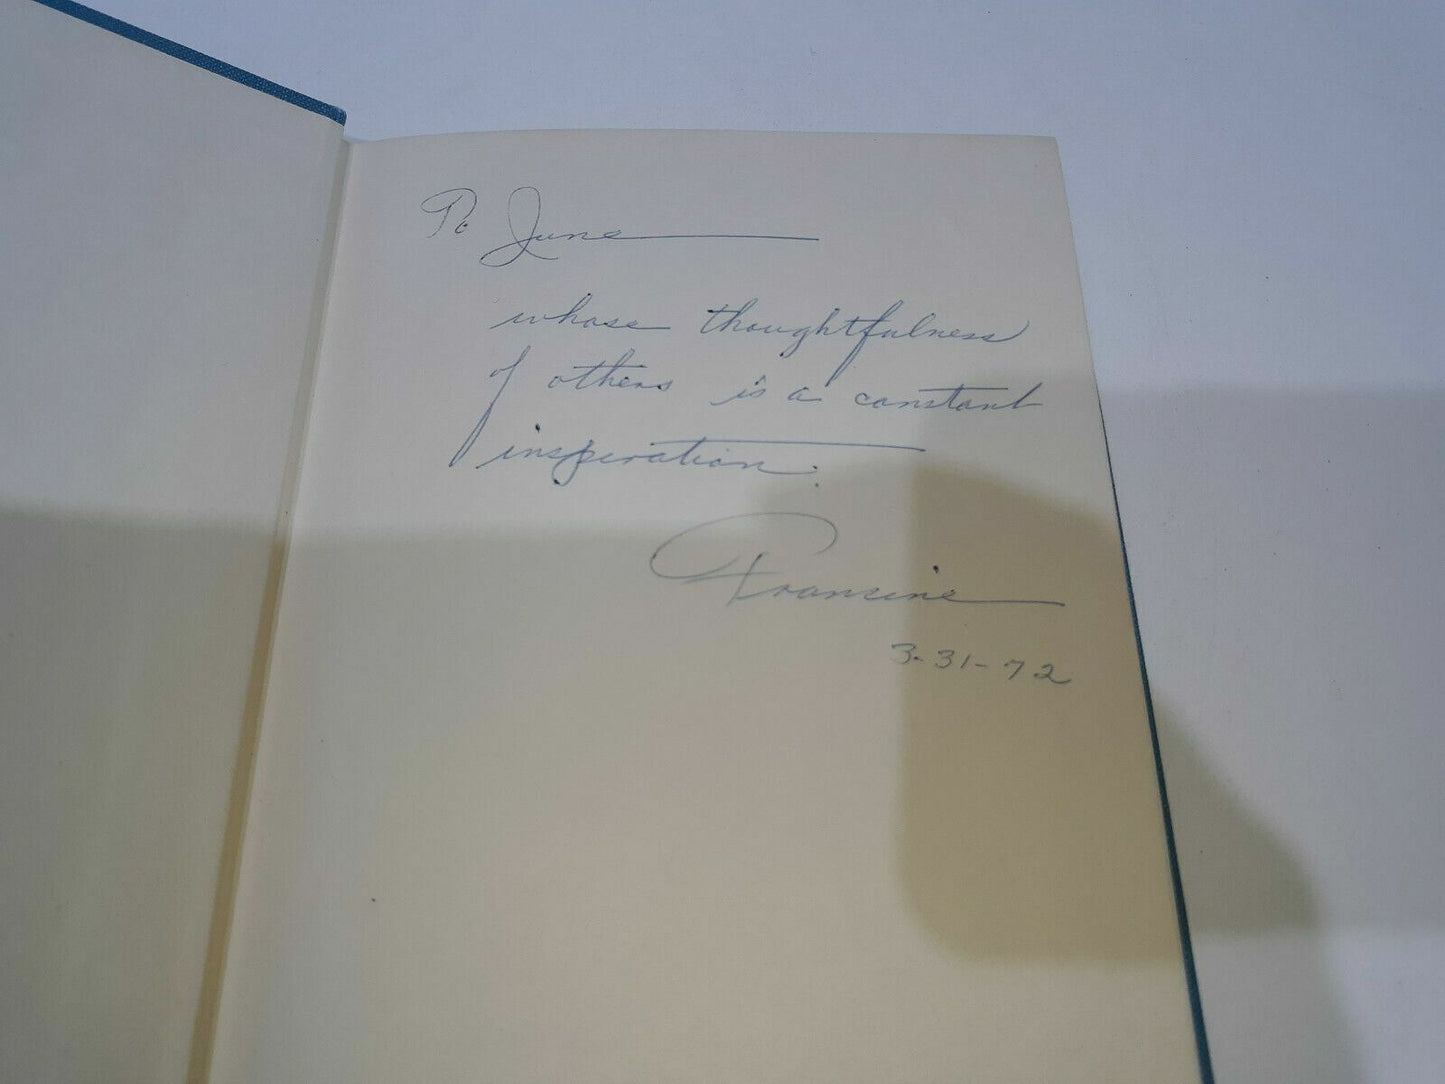 To June
whose thoughtfulness
of others is a constant
inspiration.
Francine
3-31-72